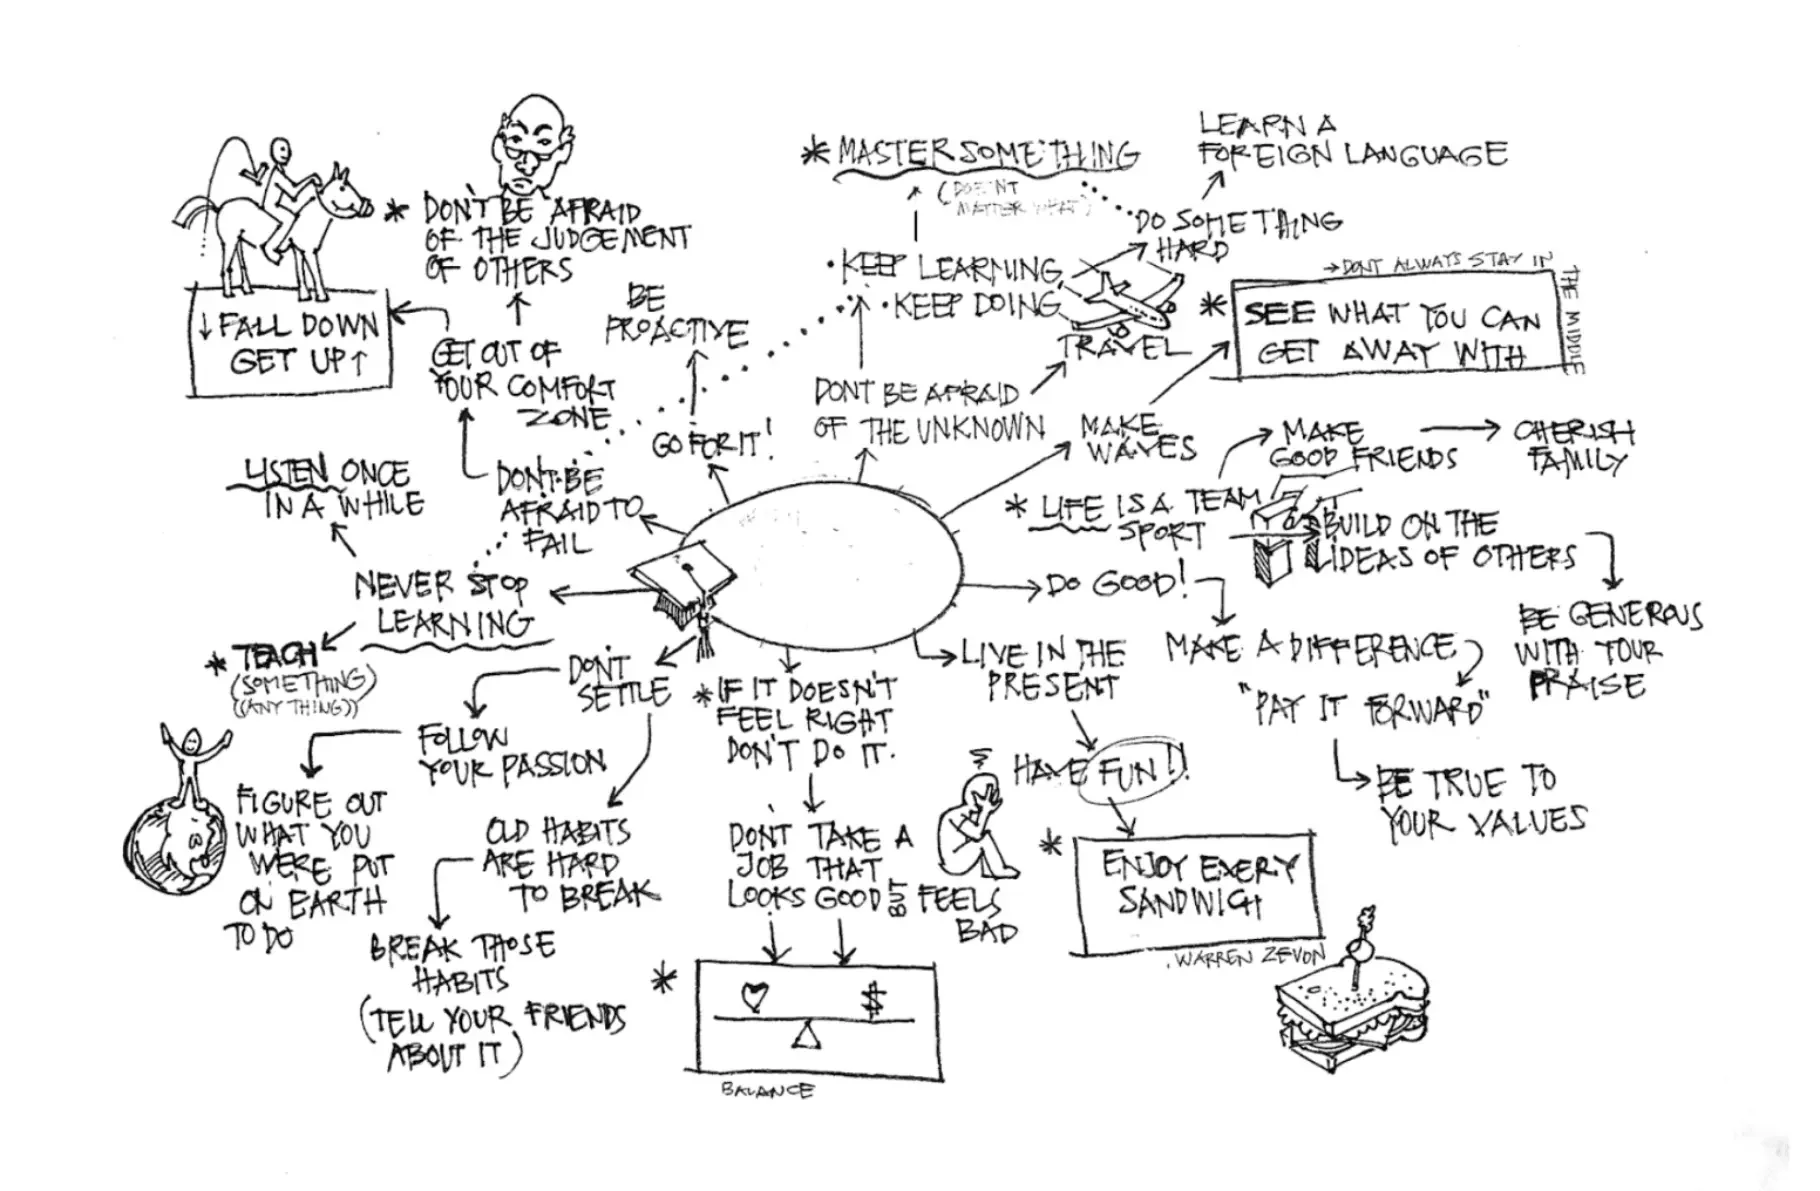 * DON'T BE AFRAID
OF THE JUDGEMENT
OF OTHERS
↓ FALL DOWN
GET UP ↑
GET OUT OF
YOUR COMFORT
ZONE
BE
PROACTIVE
GO FOR IT!
DON'T BE
AFRAID TO
FAIL
LISTEN ONCE
IN A WHILE
NEVER STOP
LEARNING
* TEACH
(SOMETHING)
((ANY THING))
DON'T
SETTLE
FOLLOW
YOUR PASSION
FIGURE OUT
WHAT YOU
WERE PUT
ON EARTH
TO DO
OLD HABITS
ARE HARD
TO BREAK
BREAK THOSE
HABITS
(TELL YOUR FRIENDS
ABOUT IT)
* MASTER SOMETHING
(DOESN'T
MATTER WHAT)
LEARN A
FOREIGN LANGUAGE
DO SOMETHING
HARD
• KEEP LEARNING
• KEEP DOING
TRAVEL
DONT BE AFRAID
OF THE UNKNOWN
MAKE
WAVES
→ DONT ALWAYS STAY IN
THE MIDDLE
* SEE WHAT YOU CAN
GET AWAY WITH
MAKE
GOOD FRIENDS
CHERISH
FAMILY
* LIFE IS A TEAM
SPORT
BUILD ON THE
IDEAS OF OTHERS
BE GENEROUS
WITH YOUR
PRAISE
DO GOOD!
MAKE A DIFFERENCE
"PAY IT FORWARD"
BE TRUE TO
YOUR VALUES
LIVE IN THE
PRESENT
HAVE FUN!!
* ENJOY EVERY
SANDWICH
. WARREN ZEVON
* IF IT DOESN'T
FEEL RIGHT
DON'T DO IT.
DON'T TAKE A
JOB THAT
LOOKS GOOD BUT FEELS
BAD
* $
BALANCE